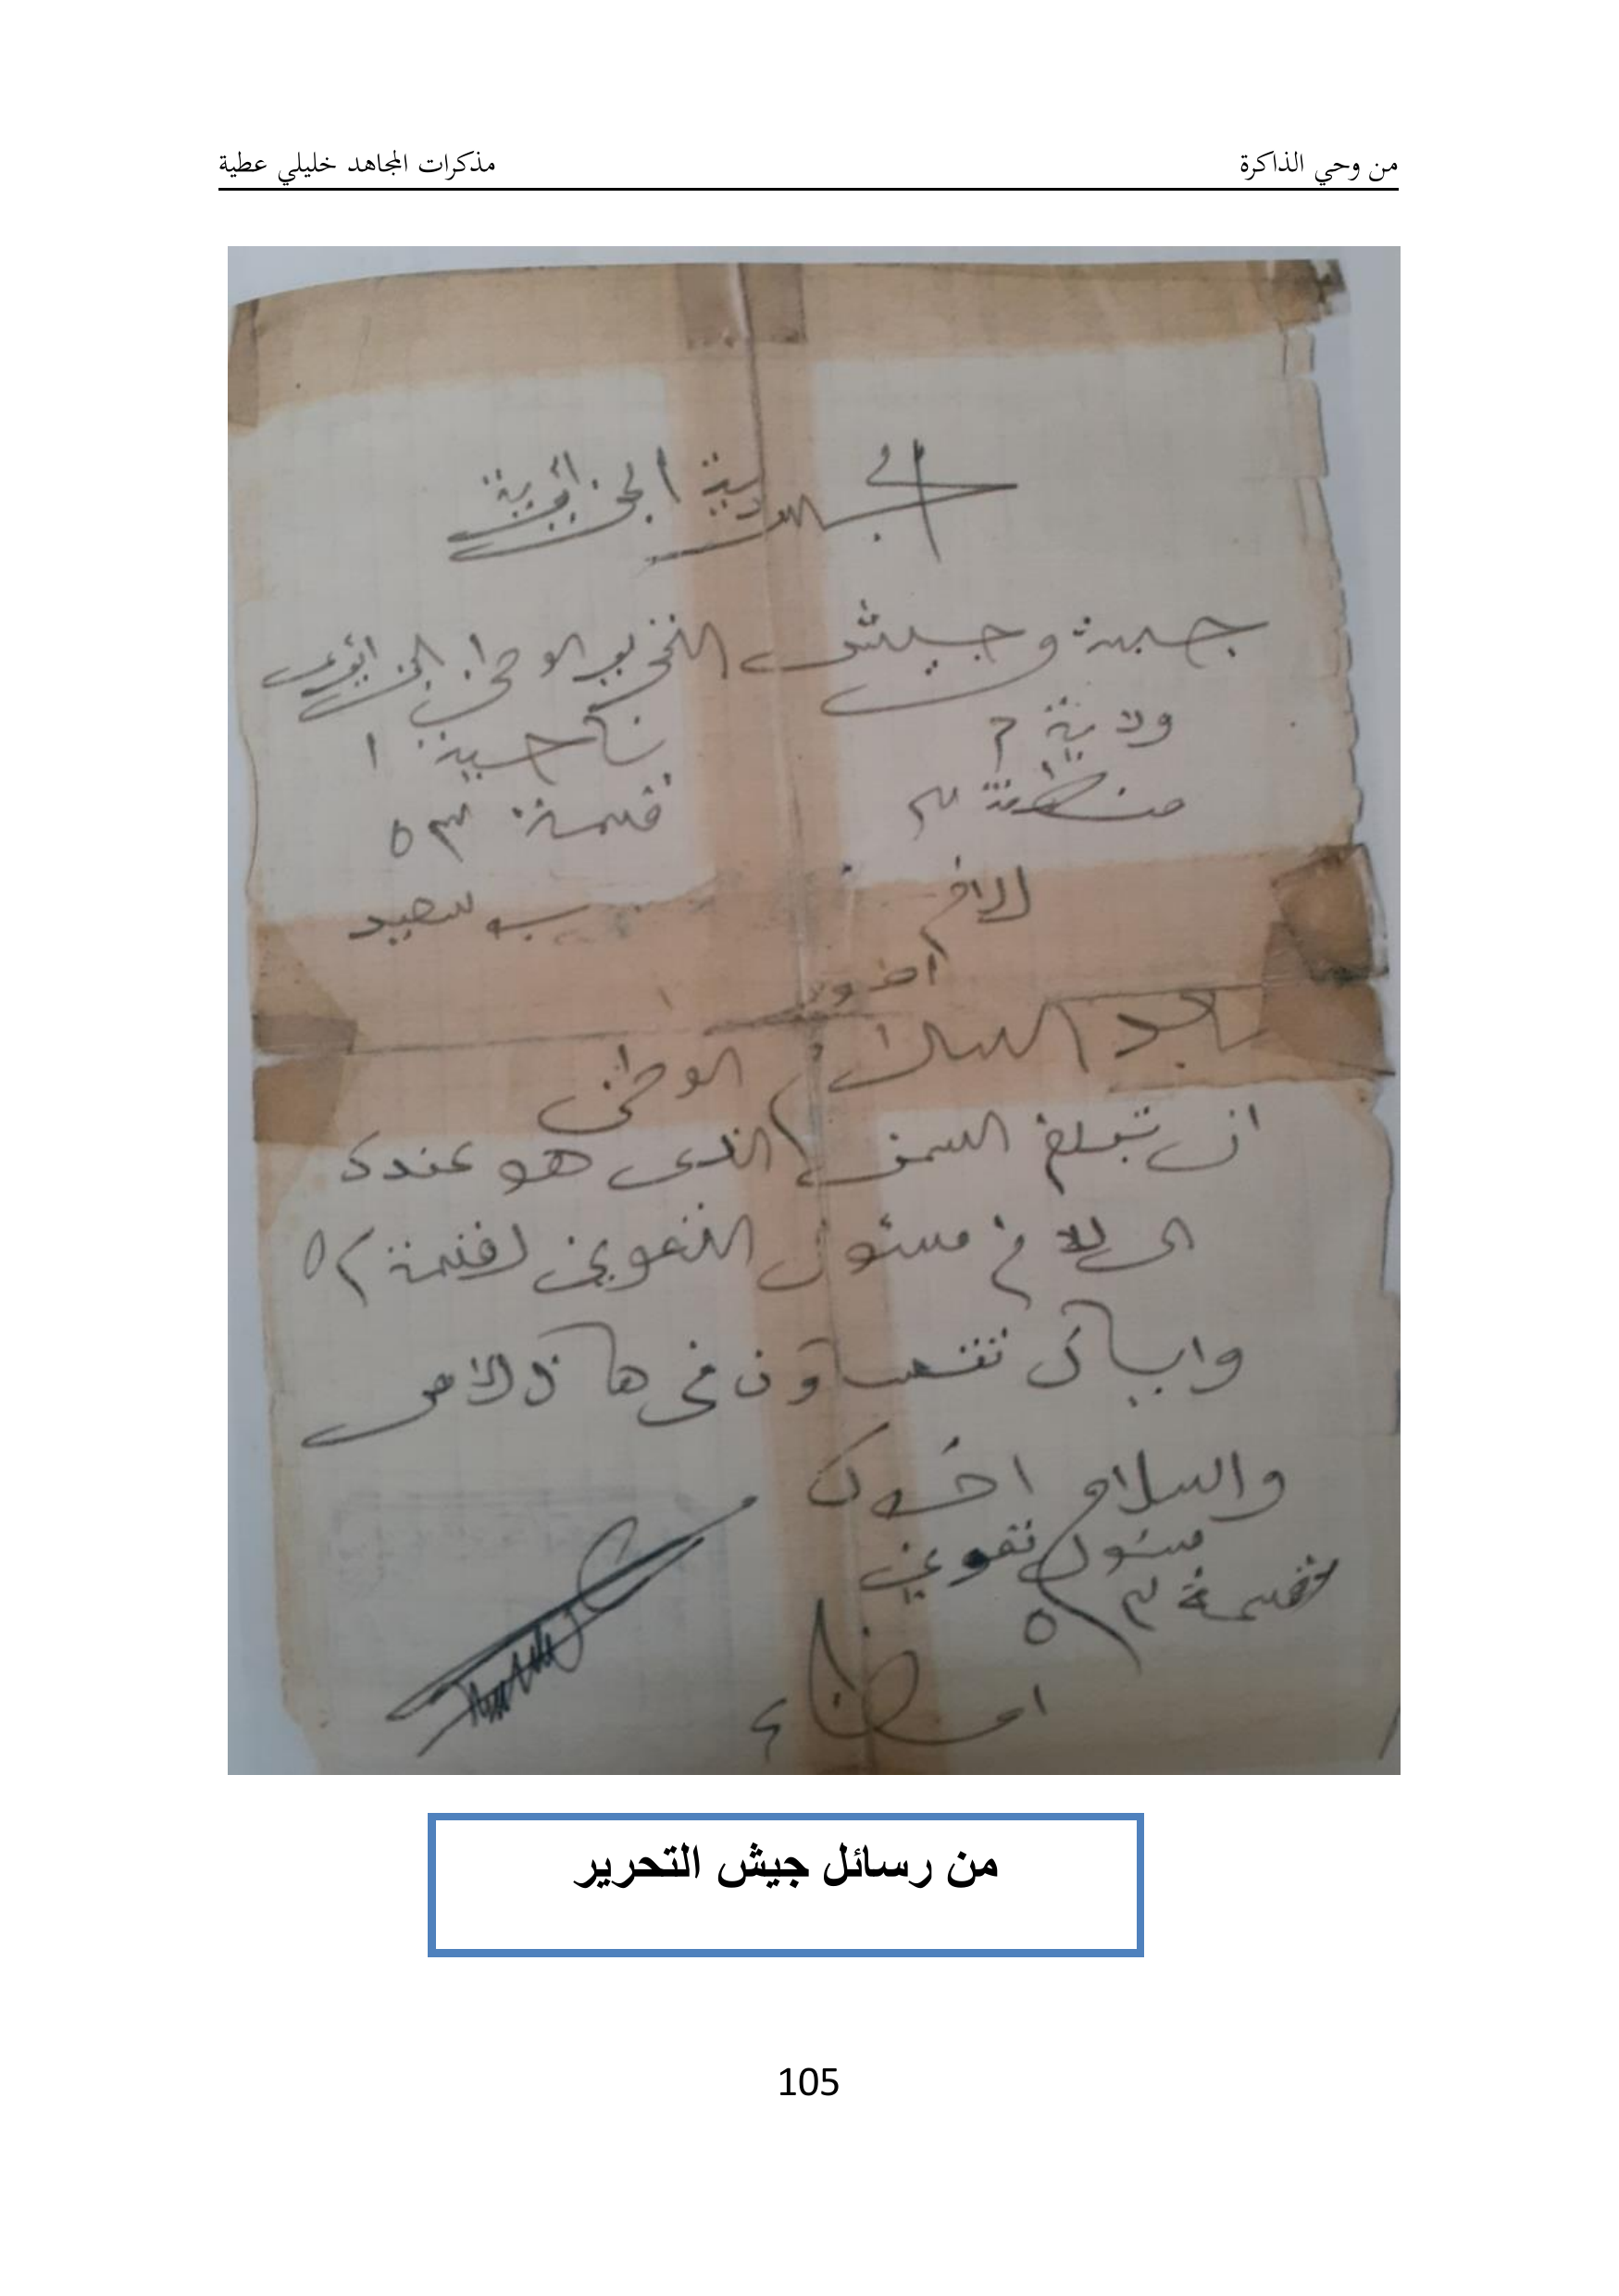 من وحي الذاكرة
مذكرات المجاهد خليلي عطية
الجمهورية الجزائرية
جبهة وجيش التحرير الوطني الجزائري
ولاية ٦ ناحية ١
منطقة ٣ قسمة ٥٣
للاخ سعيد
بعد السلام الوطني
ان تبلغ السمن الذى هو عندك
الى للاخ مسئول التموين لقسمة
واياك تتهاون في هاذ لامر
والسلام اخوك
مسئول تموين
قسمة ٥٣
امضاء
من رسائل جيش التحرير
105